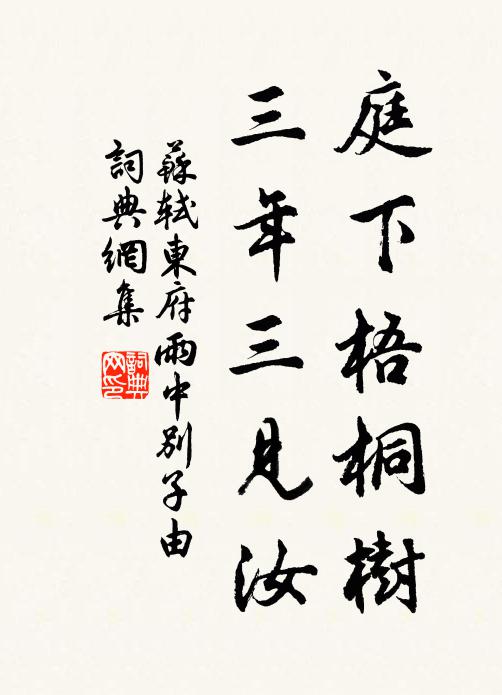 庭下梧桐樹
三年三見汝
蘇軾東府雨中別子由
詞典網集
詞典網印